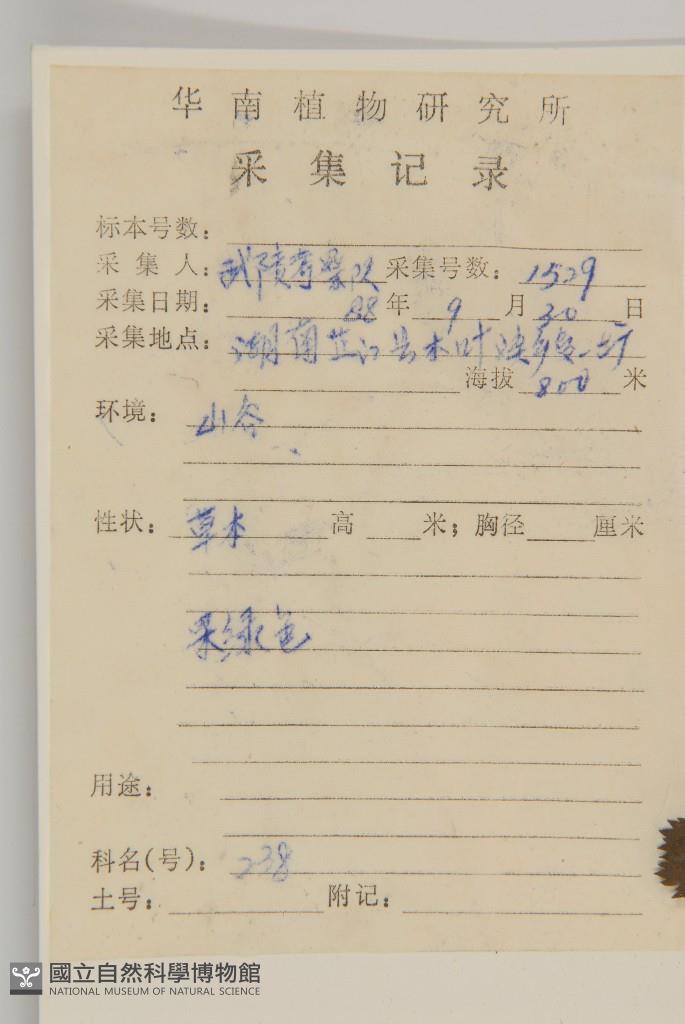 华南植物研究所
采集记录
标本号数：
采集人：武陵考察队 采集号数：1529
采集日期： 88年 9月30日
采集地点：湖南芷江县木叶
海拔 800 米
环境：山谷
性状：草本 高 米；胸径 厘米
果绿色
用途：
科名(号)：238
土号： 附记：
國立自然科學博物館
NATIONAL MUSEUM OF NATURAL SCIENCE